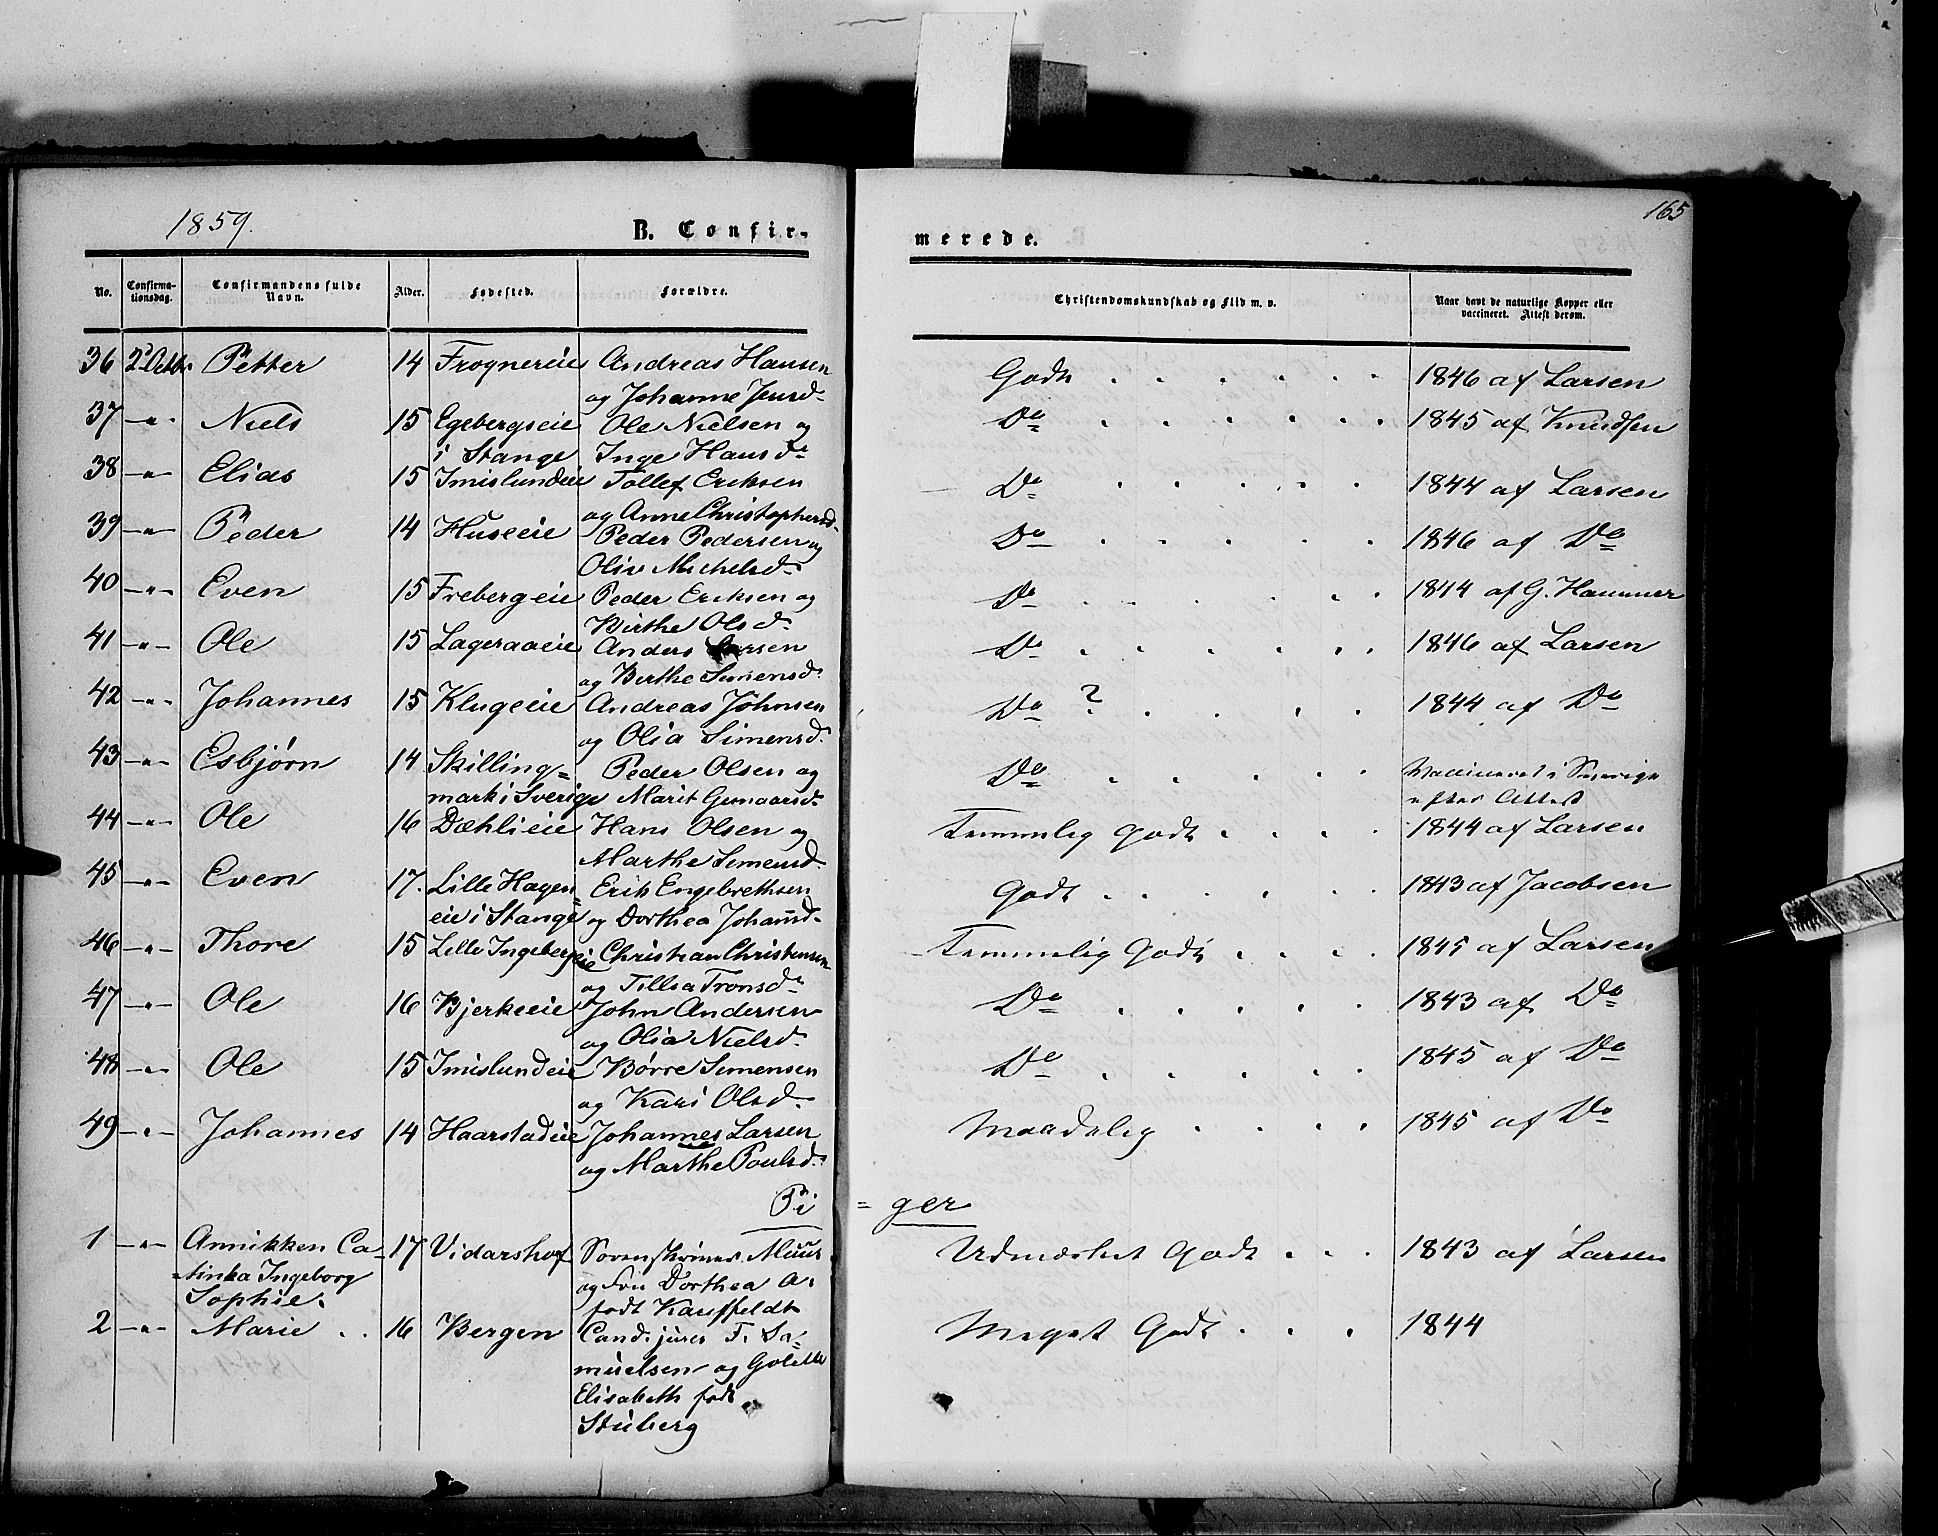 1859.
B. Confir-
merede.
165
No.
Confirma-
tionsdag.
Confirmandens fulde
Navn.
Alder.
Fødested.
Forældre.
Christendomskundskab og Flid m. v.
Naar havt de naturlige Kopper eller
vaccineret. Attest derom.
36 2 Octbr Petter 14 Frognereie Andreas Hansen Godt . . . . . . 1846 af Larsen
og Johanne Jensd.
37 -"- Niels 15 Egebergseie Ole Nielsen og Do . . . . . . 1845 af Knudsen
i Stange Inge Hansd.
38 -"- Elias 15 Imislundeie Tollef Eriksen Do . . . . . 1844 af Larsen
og Anne Christophersd.
39 -"- Peder 14 Huseeie Peder Pedersen og Do . . . . . 1846 af Do
Oliv Michelsd.
40 -"- Even 15 Frebergeie Peder Eriksen og Do . . . . . . 1844 af G. Hammer
Birthe Olsd.
41 -"- Ole 15 Lageraaeie Anders Larsen Do . . . . . . 1846 af Larsen
og Berthe Simensd.
42 -"- Johannes 15 Klugeeie Andreas Johnsen Do ? . . . . 1844 af Do
og Olia Simensd.
43 -"- Esbjørn 14 Skilling= Peder Olsen og Do . . . . . Vaccineret i Sverige
mark i Sverige Marit efter Attest
44 -"- Ole 16 Dæhlieie Hans Olsen og Temmelig Godt . . . . 1844 af Larsen
Marthe Simensd.
45 -"- Even 17. Lille Hagen= Erik Engebrethsen Godt . . . . . 1843 af Jacobsen
eie i Stange og Dorthea Johansd.
46 -"- Thore 15 Lille Ingebergeie Christian Christensen Temmelig Godt . . . . 1845 af Larsen
og Tillia Tronsd.
47 -"- Ole 16 Bjerkeeie John Andersen Do . . . . . 1843 af Do
og Olia Nielsd.
48 -"- Ole 15 Imislundeie Børre Simensen Do . . . . . 1845 af Do
og Kari Olsd.
49 -"- Johannes 14 Haarstadeie Johannes Larsen Maadelig . . . . 1845 af Do
og Marthe Poulsd.
Pi = ger
1 -"- Annikken Ca- 17 Vidarshof Sorenskriver Muus Udmærket Godt . . . 1843 af Larsen
=tinka Ingeborg og Fru Dorthea A.
Sophie. født Kauffeldt
2 -"- Marie . . 16 Bergen Cand. jures F. Sa= Meget Godt . . . 1844
muelsen og
Elisabeth født
Stuberg